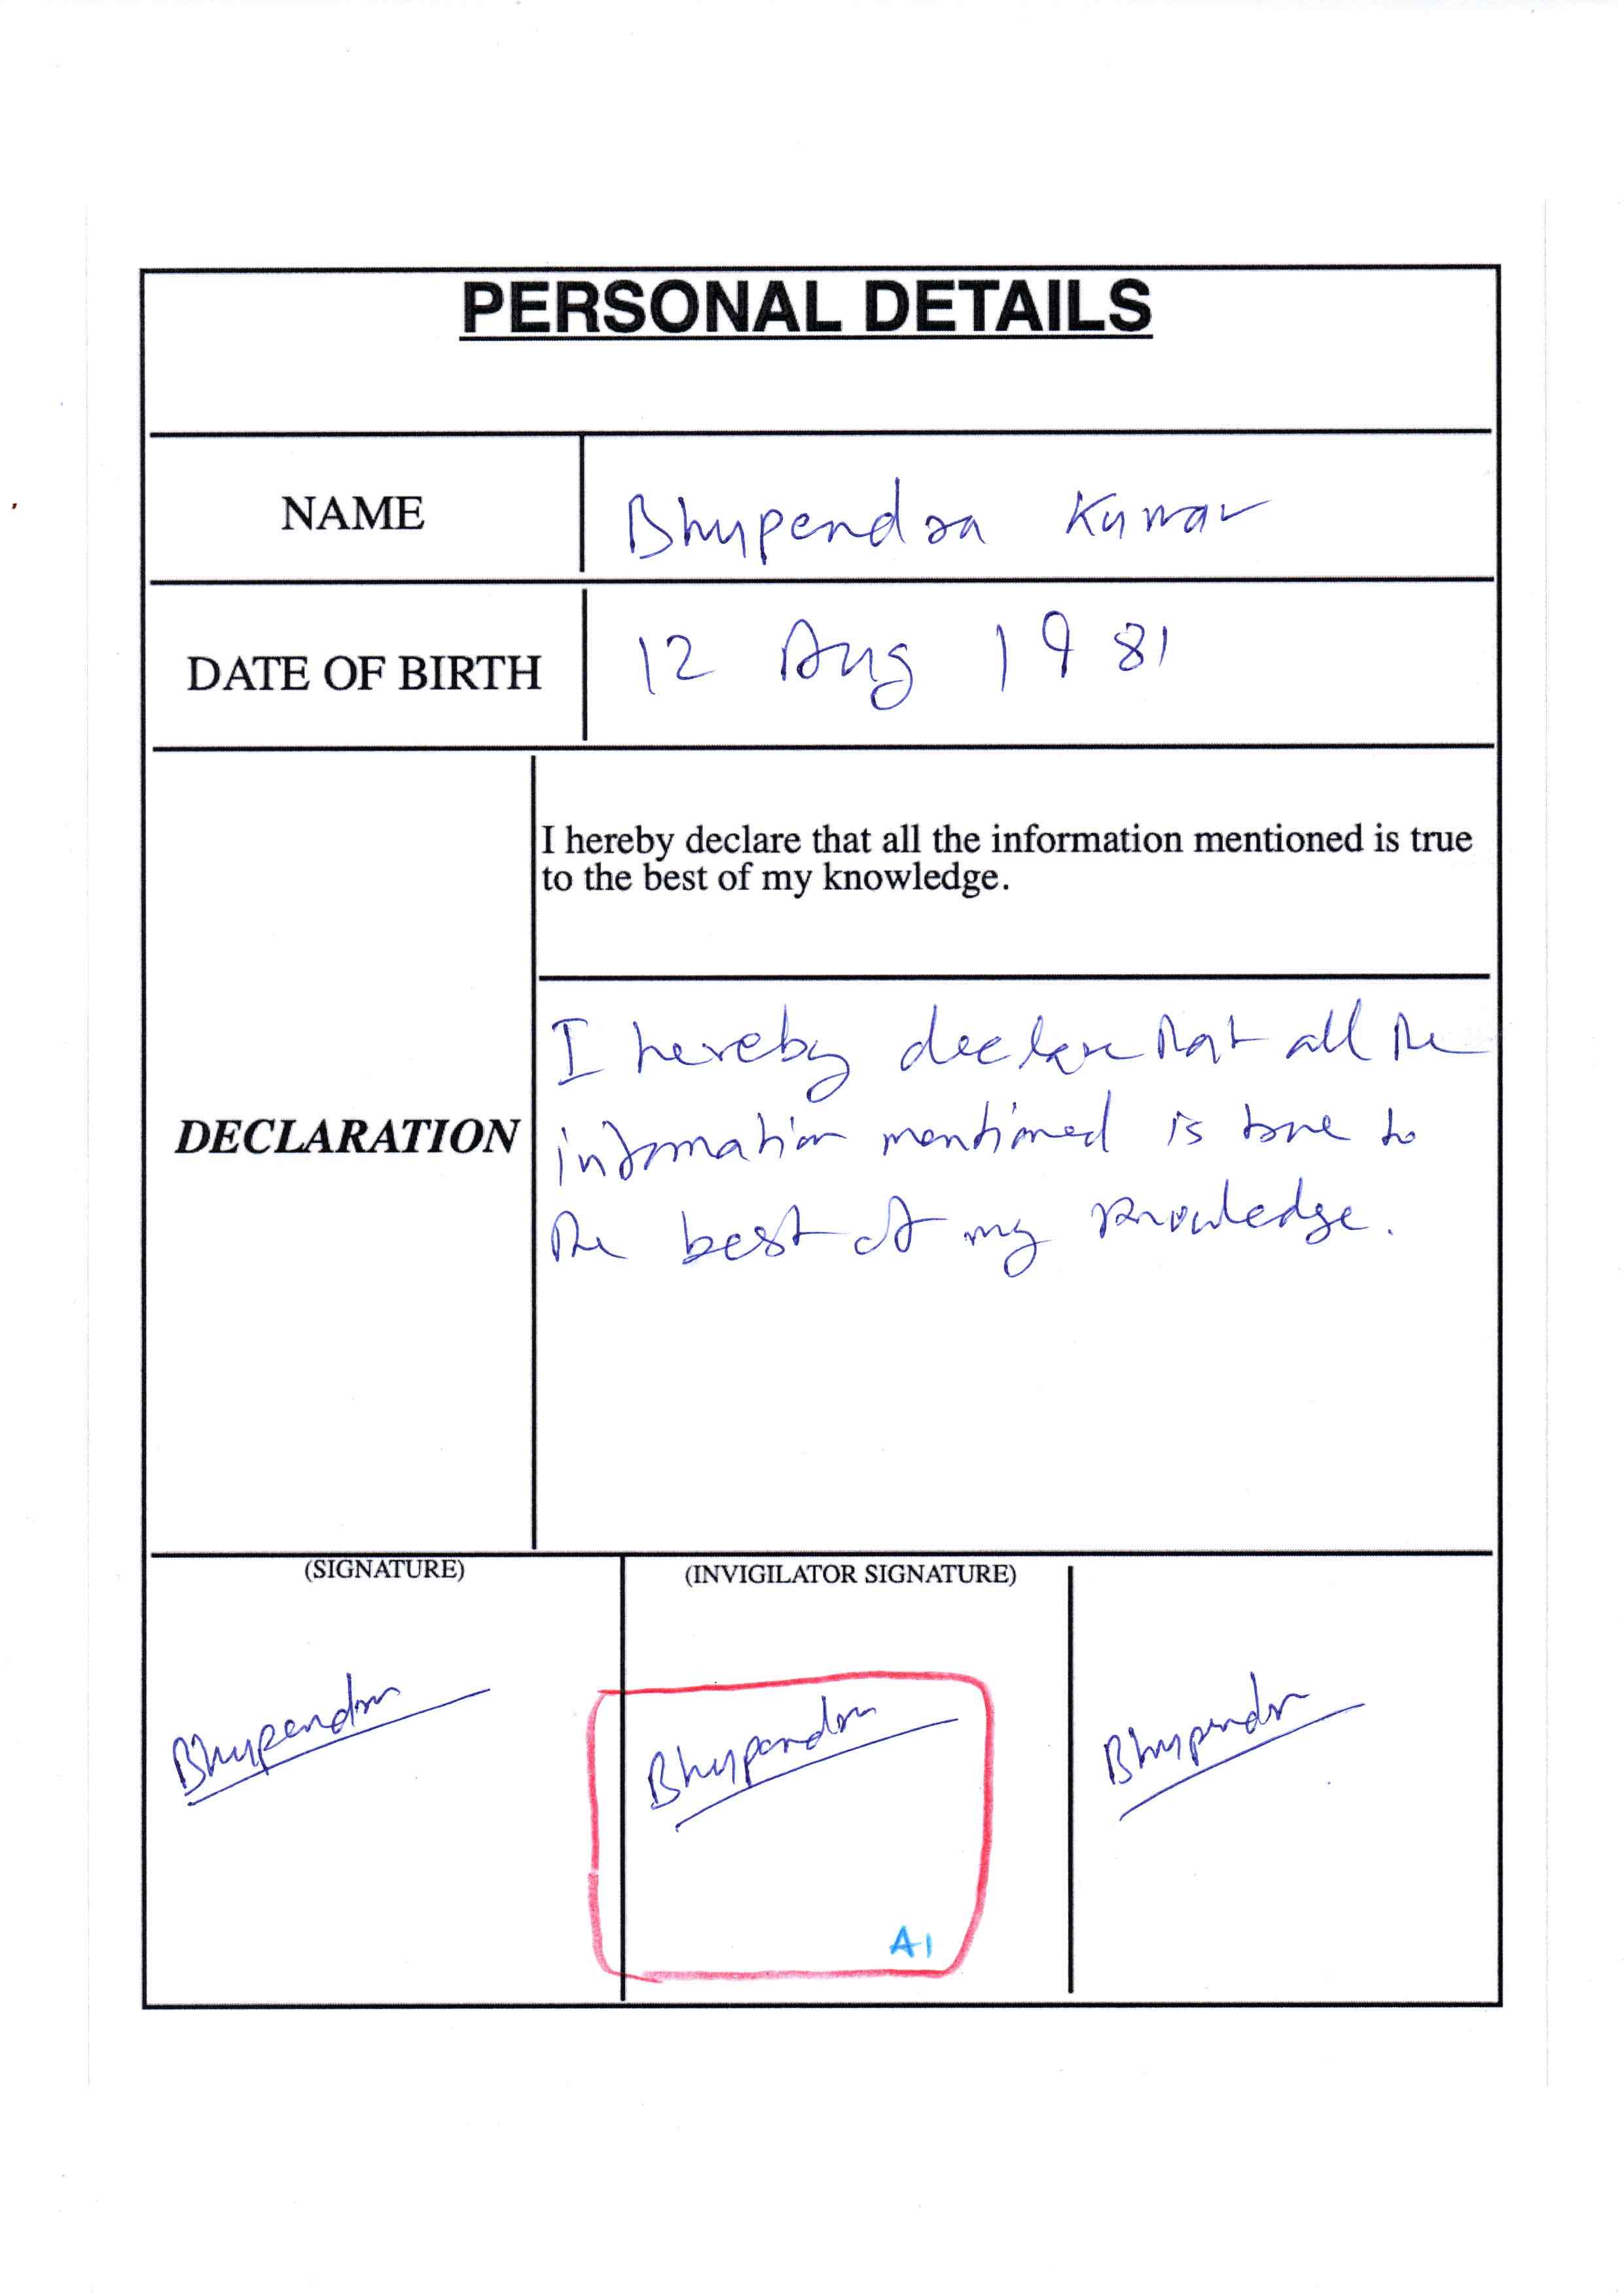 PERSONAL DETAILS
NAME
Bhupendra Kumar
DATE OF BIRTH
12 Aug 1981
I hereby declare that all the information mentioned is true
to the best of my knowledge.
DECLARATION
I hereby declare that all the
information mentioned is true to
the best of my knowledge.
(SIGNATURE)
(INVIGILATOR SIGNATURE)
Bhupendra
Bhupendra
Bhupendra
A1